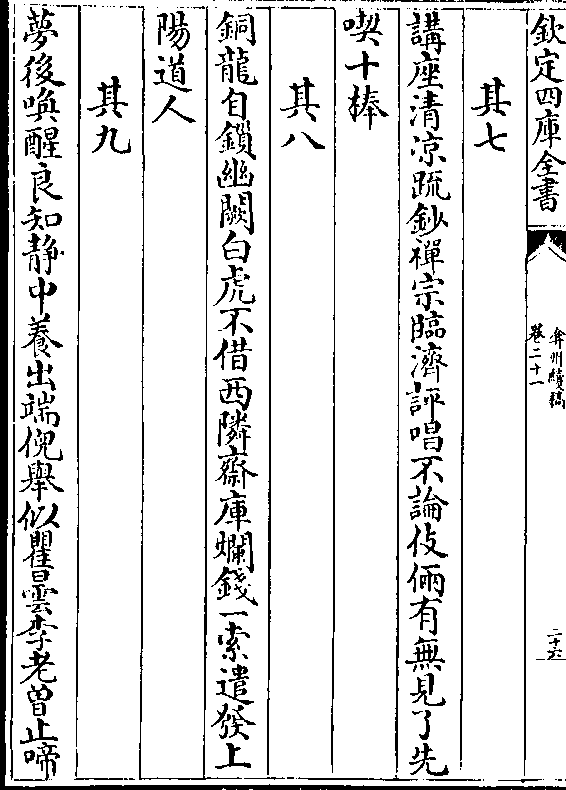 欽定四庫全書
弇州續稿
卷二十一
二十六
其七
講座清凉疏鈔禪宗臨濟評唱不論伎倆有無見了先
喫十棒
其八
銅龍自鎖幽闕白虎不借西隣齋庫爛錢一索遣發上
陽道人
其九
夢後喚醒良知静中養出端倪舉似瞿曇李老曾止啼